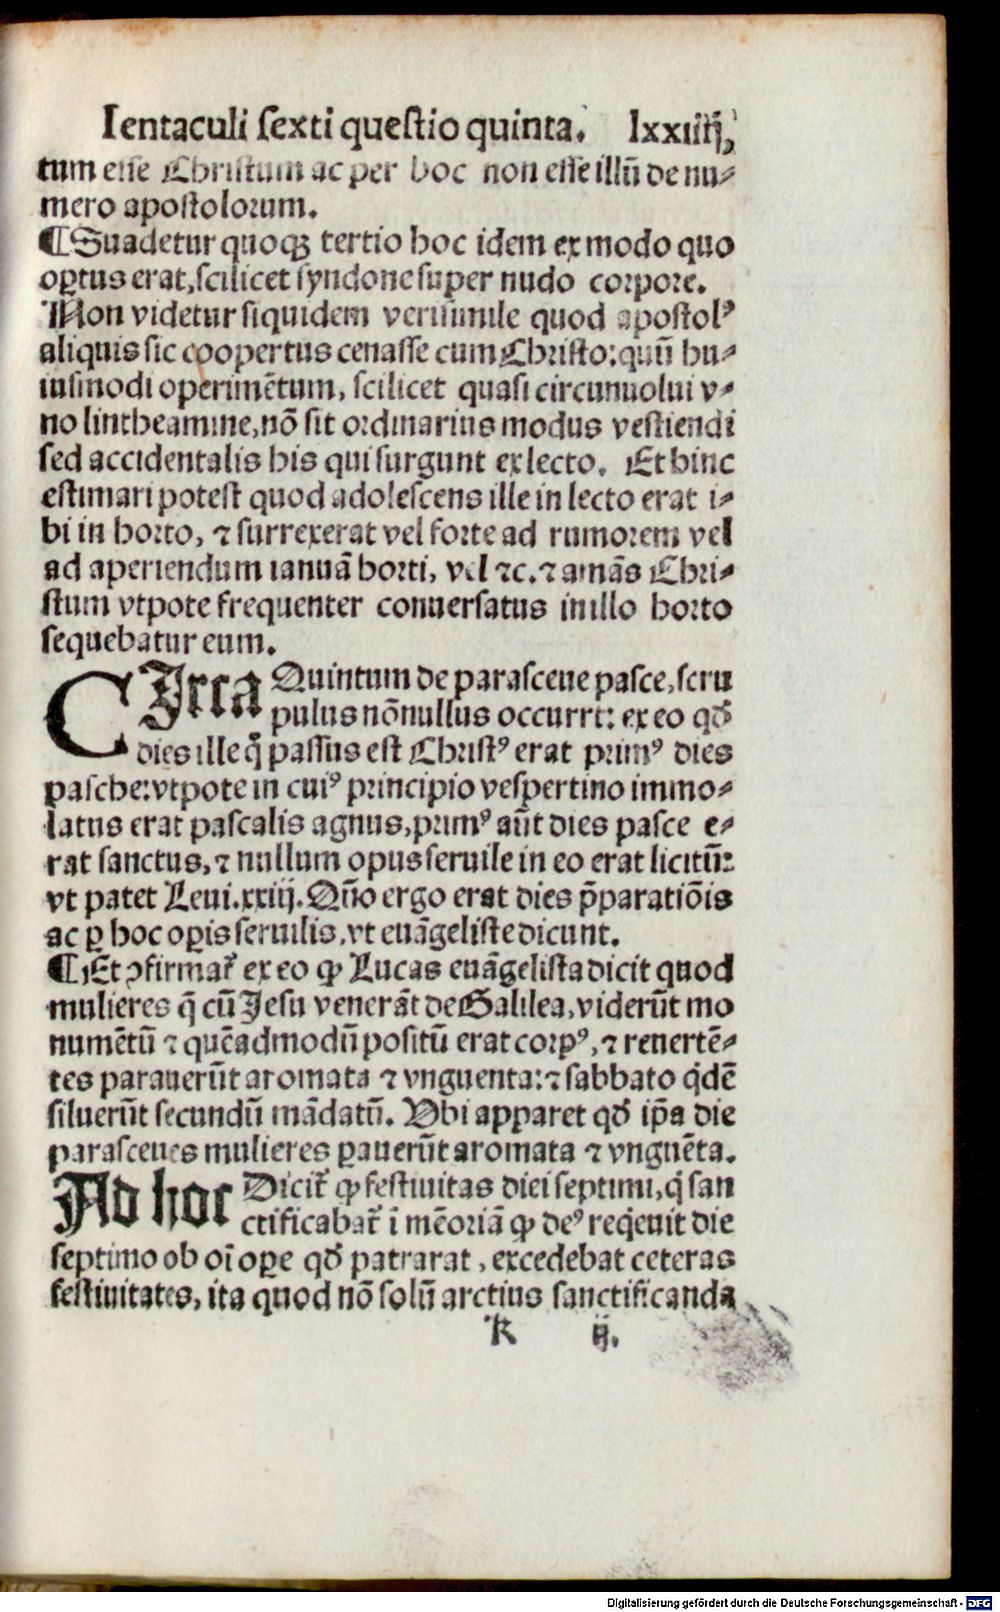 Ientaculi sexti questio quinta. lxxiiij,
tum esse Christum ac per hoc non esse illũ de nu⸗
mero apostolorum.
¶Suadetur quoqꝫ tertio hoc idem ex modo quo
oꝑtus erat, scilicet syndone super nudo corpore.
Non videtur siquidem verisimile quod apostolꝰ
aliquis sic coopertus cenasse cum Christo: quũ hu⸗
iusmodi operimẽtum, scilicet quasi circunuolui v⸗
no lintheamine, nõ sit ordinarius modus vestiendi
sed accidentalis his qui surgunt ex lecto. Et hinc
estimari potest quod adolescens ille in lecto erat i⸗
bi in horto, ⁊ surrexerat vel forte ad rumorem vel
ad aperiendum ianuã horti, vel ⁊c. ⁊ amãs Chri⸗
stum vtpote frequenter conuersatus in illo horto
sequebatur eum.
CIrca Quintum de parasceue pasce, scru
pulus nõnullus occurrt: ex eo qđ
dies ille q̃ passus est Christꝰ erat primꝰ dies
pasche: vtpote in cuiꝰ principio vespertino immo⸗
latus erat pascalis agnus, primꝰ aũt dies pasce e⸗
rat sanctus, ⁊ nullum opus seruile in eo erat licitũ:
vt patet Leui. xxiij. Qũo ergo erat dies p̃paratiõis
ac ꝑ hoc oꝑis seruilis, vt euãgeliste dicunt.
¶Et ꝯfirmat̃ ex eo ꝙ Lucas euãgelista dicit quod
mulieres q̃ cũ Jesu venerãt de Galilea, viderũt mo
numẽtũ ⁊ quẽadmodũ positũ erat corpꝰ, ⁊ reuertẽ⸗
tes parauerũt aromata ⁊ vnguenta: ⁊ sabbato q̃dẽ
siluerũt secundũ mãdatũ. Vbi apparet qđ ip̃a die
parasceues mulieres ꝑauerũt aromata ⁊ vnguẽta.
Ad hoc Dicit̃ ꝙ festiuitas diei septimi, q̃ san
ctificabat̃ ĩ mẽoriã ꝙ deꝰ req̃euit die
septimo ob oĩ oꝑe qđ patrarat, excedebat ceteras
festiuitates, ita quod nõ solũ arctius sanctificanda
K ij.
Digitalisierung gefördert durch die Deutsche Forschungsgemeinschaft - DFG